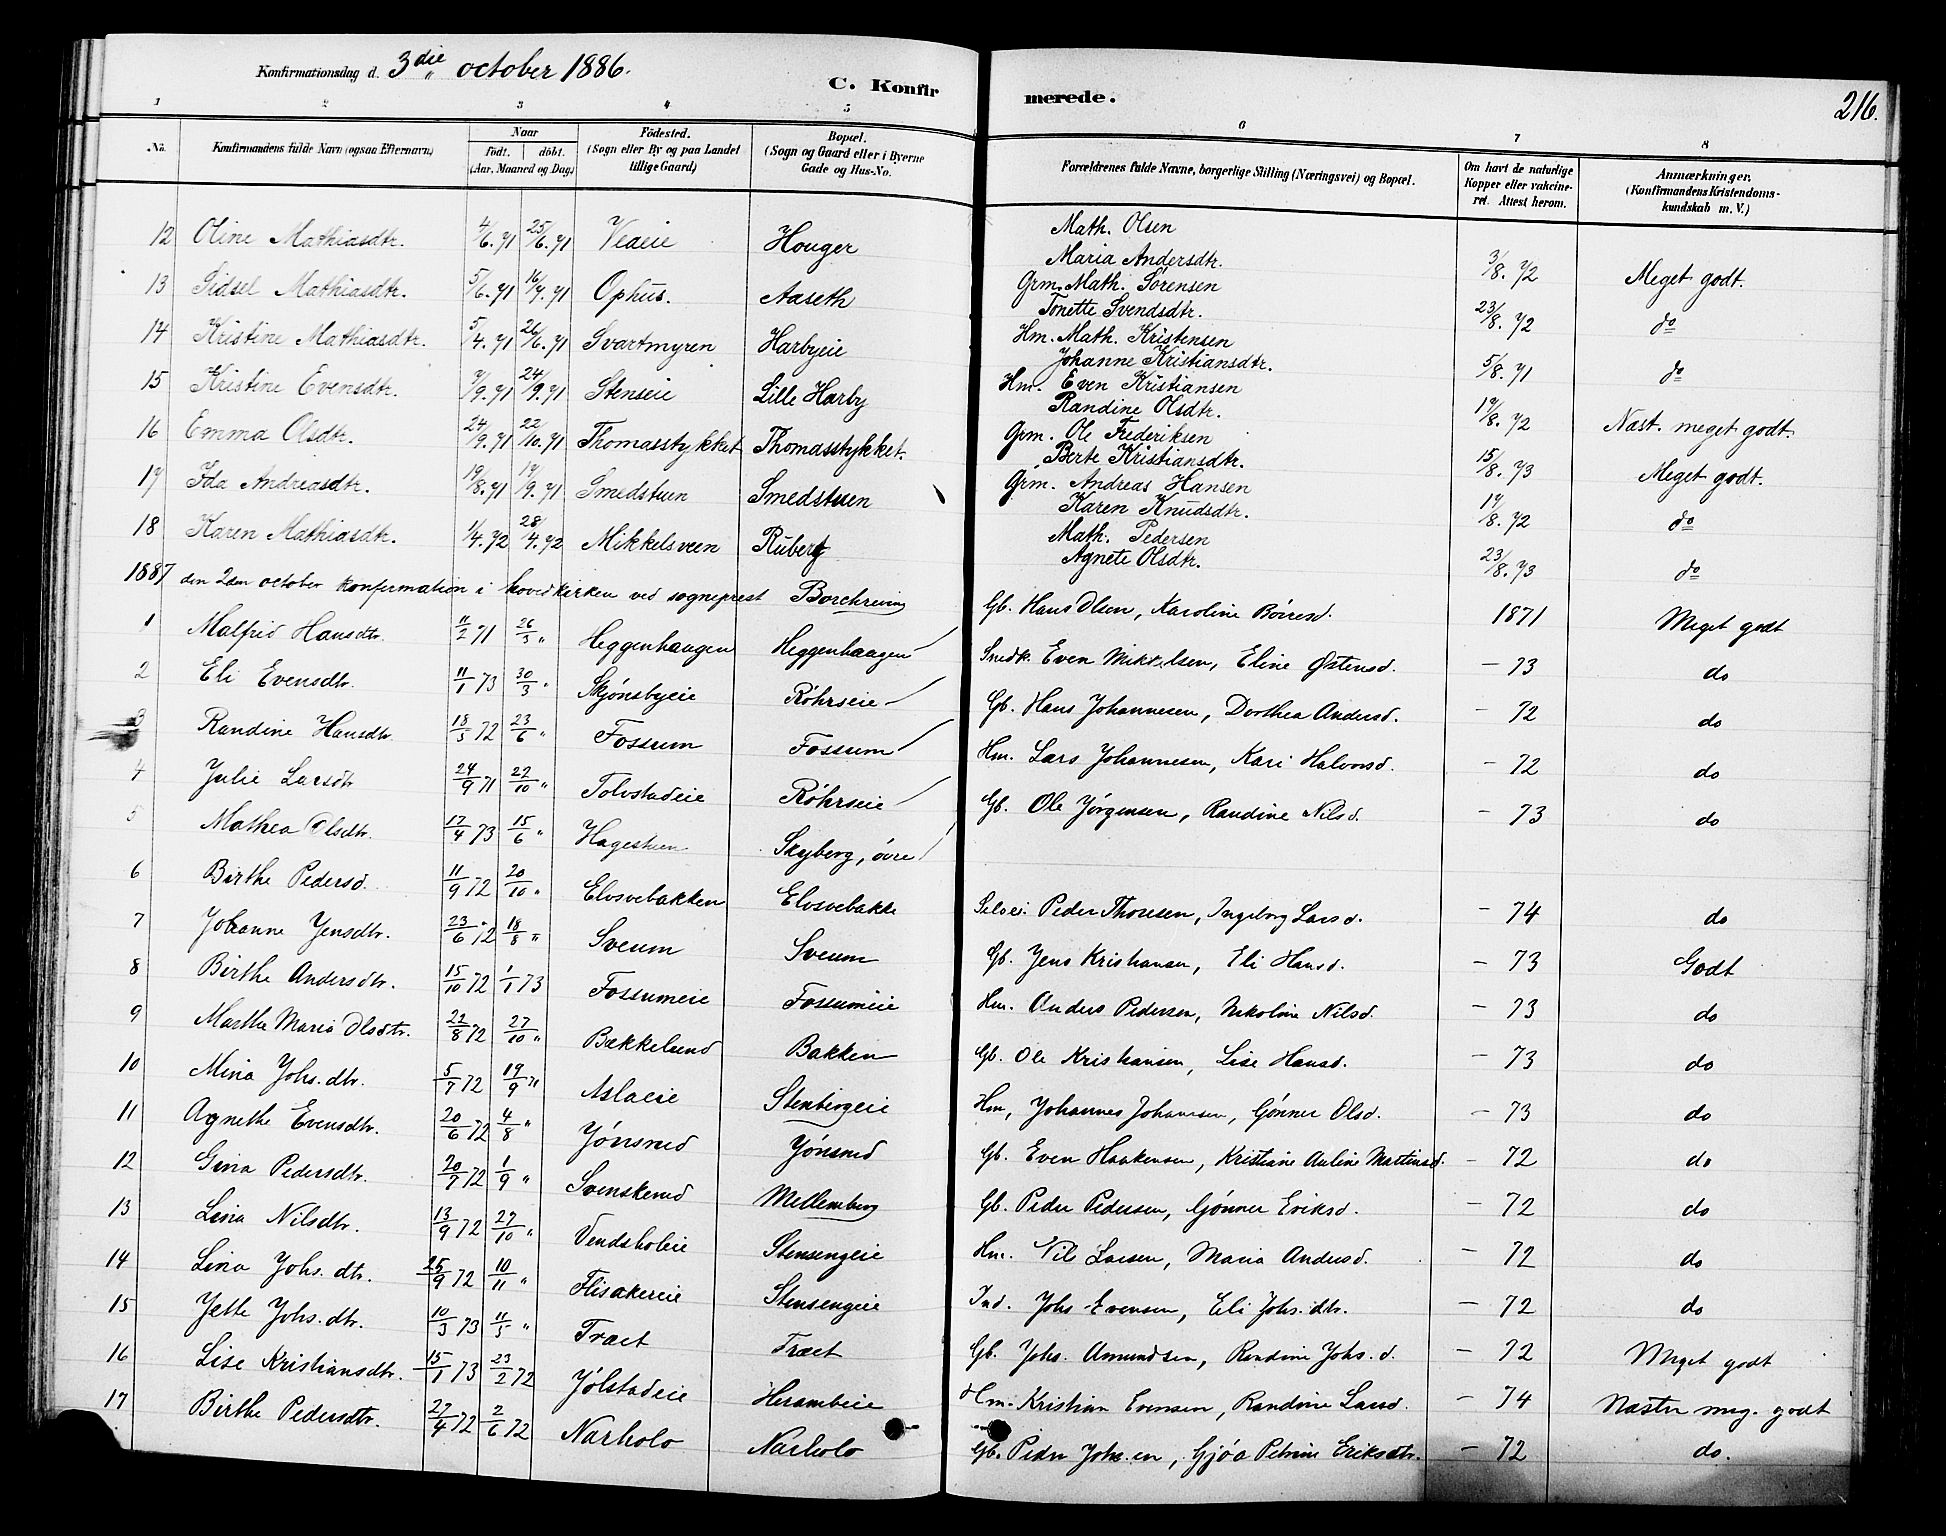 Konfirmationsdag d. 3die october 1886.
C. Konfirmerede.
216.
1 2 3 4 5 6 7 8
No. Konfirmandens fulde Navn (ogsaa Efternavn) Naar födt. döbt. (Aar, Maaned og Dag) Födested. (Sogn eller By og paa Landet tillige Gaard) Bopæl. (Sogn og Gaard eller i Byerne Gade og Hus-No. Forældrenes fulde Navne, borgerlige Stilling (Næringsvei) og Bopæl. Om havt de naturlige Kopper eller vakcineret. Attest herom. Anmærkninger. (Konfirmandens Kristendomskundskab m. V.)
12 Oline Mathiasdtr. 4/6. 71 25/6. 71 Vedeie Houger Math. Olsen Maria Andersdtr. 3/8. 72 Meget godt.
13 Sidsel Mathiasdtr. 5/6. 71 16/7. 71 Ophus. Aaseth Grm. Math. Sörensen Tonette Svendsdtr. 23/8. 72 do
14 Kristine Mathiasdtr. 5/4. 71 26/6. 71 Svartmyren Harbyeie Hm. Math. Kristensen Johanne Kristiansdtr. 5/8. 71 do
15 Kristine Evensdtr. 7/9. 71 24/9. 71 Stenseie Lille Harby Hm. Even Kristiansen Randine Olsdtr. 17/8. 72 Næst. meget godt.
16 Emma Olsdtr. 24/9. 71 22/10. 71 Thomasstykket Thomasstykket. Grm. Ole Frederiksen Berte Kristiansdtr. 15/8. 73 Meget godt.
17 Ida Andreasdtr. 19/8. 71 17/9. 71 Smedstuen Smedstuen Grm. Andreas Hansen Karen Knudsdtr. 17/8. 72 do
18 Karen Mathiasdtr. 1/4. 72 28/4. 72 Mikkelsveen Ruberg Math. Pedersen Agnete Olsdtr. 23/8. 73 do
1887 den 2den october konfirmation i hovedkirken ved sogneprest Borchrevinq
1 Malfrid Hansdtr. 11/2 71 26/3 " Heggenhaugen Heggenhaagen Gb. Hans Olsen, Karoline Börresd. 1871 Meget godt
2 Eli Evensdtr. 11/1 73 30/3 " Skjönsbyeie Röhrseie Snedk. Even Mikkelsen, Eline Østensd. - 73 do
3 Randine Hansdtr. 18/5 72 23/6 " Fossum Fossum Gb. Hans Johannesen, Dorthea Andersd. - 72 do
4 Julie Larsdtr 24/9 71 22/10 " Tolvstadeie Röhrseie Hm. Lars Johannesen, Kari Halvorsd. - 72 do
5 Mathea Olsdtr. 17/4 73 15/6 " Hagestuen Skyberg, övre Gb. Ole Jörgensen, Randine Nilsd. - 73 do
6 Birthe Pedersd. 11/9 72 20/10 " Elvsvebakken Elvsvebakke Selvei. Peder Thoresen, Ingeborg Larsd. - 74 do
7 Johanne Jensdtr. 23/6 72 18/8 " Sveum Sveum Gb. Jens Kristiansen, Eli Hansd. - 73 Godt
8 Birthe Andersdtr. 15/10 72 1/1 73 Fossumeie Fossumeie Hm. Anders Pedersen, Nikoline Nilsd. - 73 do
9 Marthe Maria Olsdtr. 22/8 72 27/10 " Bækkelund Bakken Gb. Ole Kristiansen, Lise Hansd. - 73 do
10 Mina Johs. dtr. 5/7 72 19/9 " Aslaeie Stenbergeie Hm, Johannes Johannesen, Gönner Olsd. - 73 do
11 Agnethe Evensdtr. 20/6 72 4/8 " Jönsrud Jönsrud Gb. Even Haakensen, Kristiane Auline Martinsd. - 72 do
12 Gina Pedersdtr. 20/7 72 1/9 " Svenskerud Mellemberg Gb. Peder Pedersen, Gönner Eriksd. - 72 do
13 Lina Nilsdtr. 13/9 72 27/10 " Vendsholeie Stensengeie Hm. Nils Larsen, Maria Andersd. - 72 do
14 Lina Johs. dtr. 25/9 72 10/11 " Flisakereie Stensengeie Ind. Johs Evensen, Eli Johs. dtr. - 72 do
15 Jette Johs. dtr. 10/3 73 11/5 " Træet Træet Gb. Johs. Amundsen, Randine Johs. d. - 72 Meget godt
16 Lise Kristiansdtr. 15/1 73 23/2 72 Jölstadeie Herambeie Hm. Kristian Evensen, Randine Larsd. - 74 Næsten meg. godt
17 Birthe Pedersdtr. 27/4 72 2/6 72 Narholo Narholo Gb. Peder Johs.en, Gjöa Petrine Eriksdtr. - 72 do.